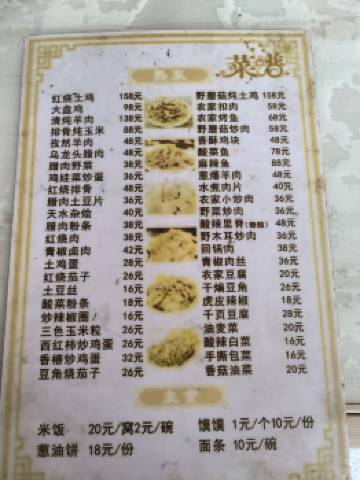 菜谱
热菜
红烧土鸡 158元
大盘鸡 98元
清炖羊肉 138元
排骨炖玉米 88元
孜然羊肉 48元
乌龙头腊肉 48元
腊肉野菜 38元
鸡蛙菜炒蛋 36元
红烧排骨 48元
腊肉土豆片 36元
天水杂烩 40元
腊肉粉条 38元
红烧肉 38元
青椒卤肉 42元
土鸡蛋 28元
红烧茄子 26元
土豆丝 16元
酸菜粉条 18元
炒辣椒圈 16元
三色玉米粒 26元
西红柿炒鸡蛋 26元
香椿炒鸡蛋 32元
豆角烧茄子 26元
野蘑菇炖土鸡 158元
农家扣肉 58元
农家烤鱼 68元
野蘑菇炒肉 58元
香酥鸡块 48元
酸菜鱼 78元
麻辣鱼 88元
葱爆羊肉 48元
水煮肉片 48元
农家小炒肉 36元
野菜炒肉 36元
酸辣里脊 48元
野木耳炒肉 36元
回锅肉 38元
青椒肉丝 36元
农家豆腐 20元
干煸豆角 26元
虎皮辣椒 20元
千页豆腐 28元
油麦菜 20元
酸辣白菜 16元
手撕包菜 16元
香菇油菜 20元
主食
米饭 20元/窝2元/碗
馍馍 1元/个10元/份
葱油饼 18元/份
面条 10元/碗